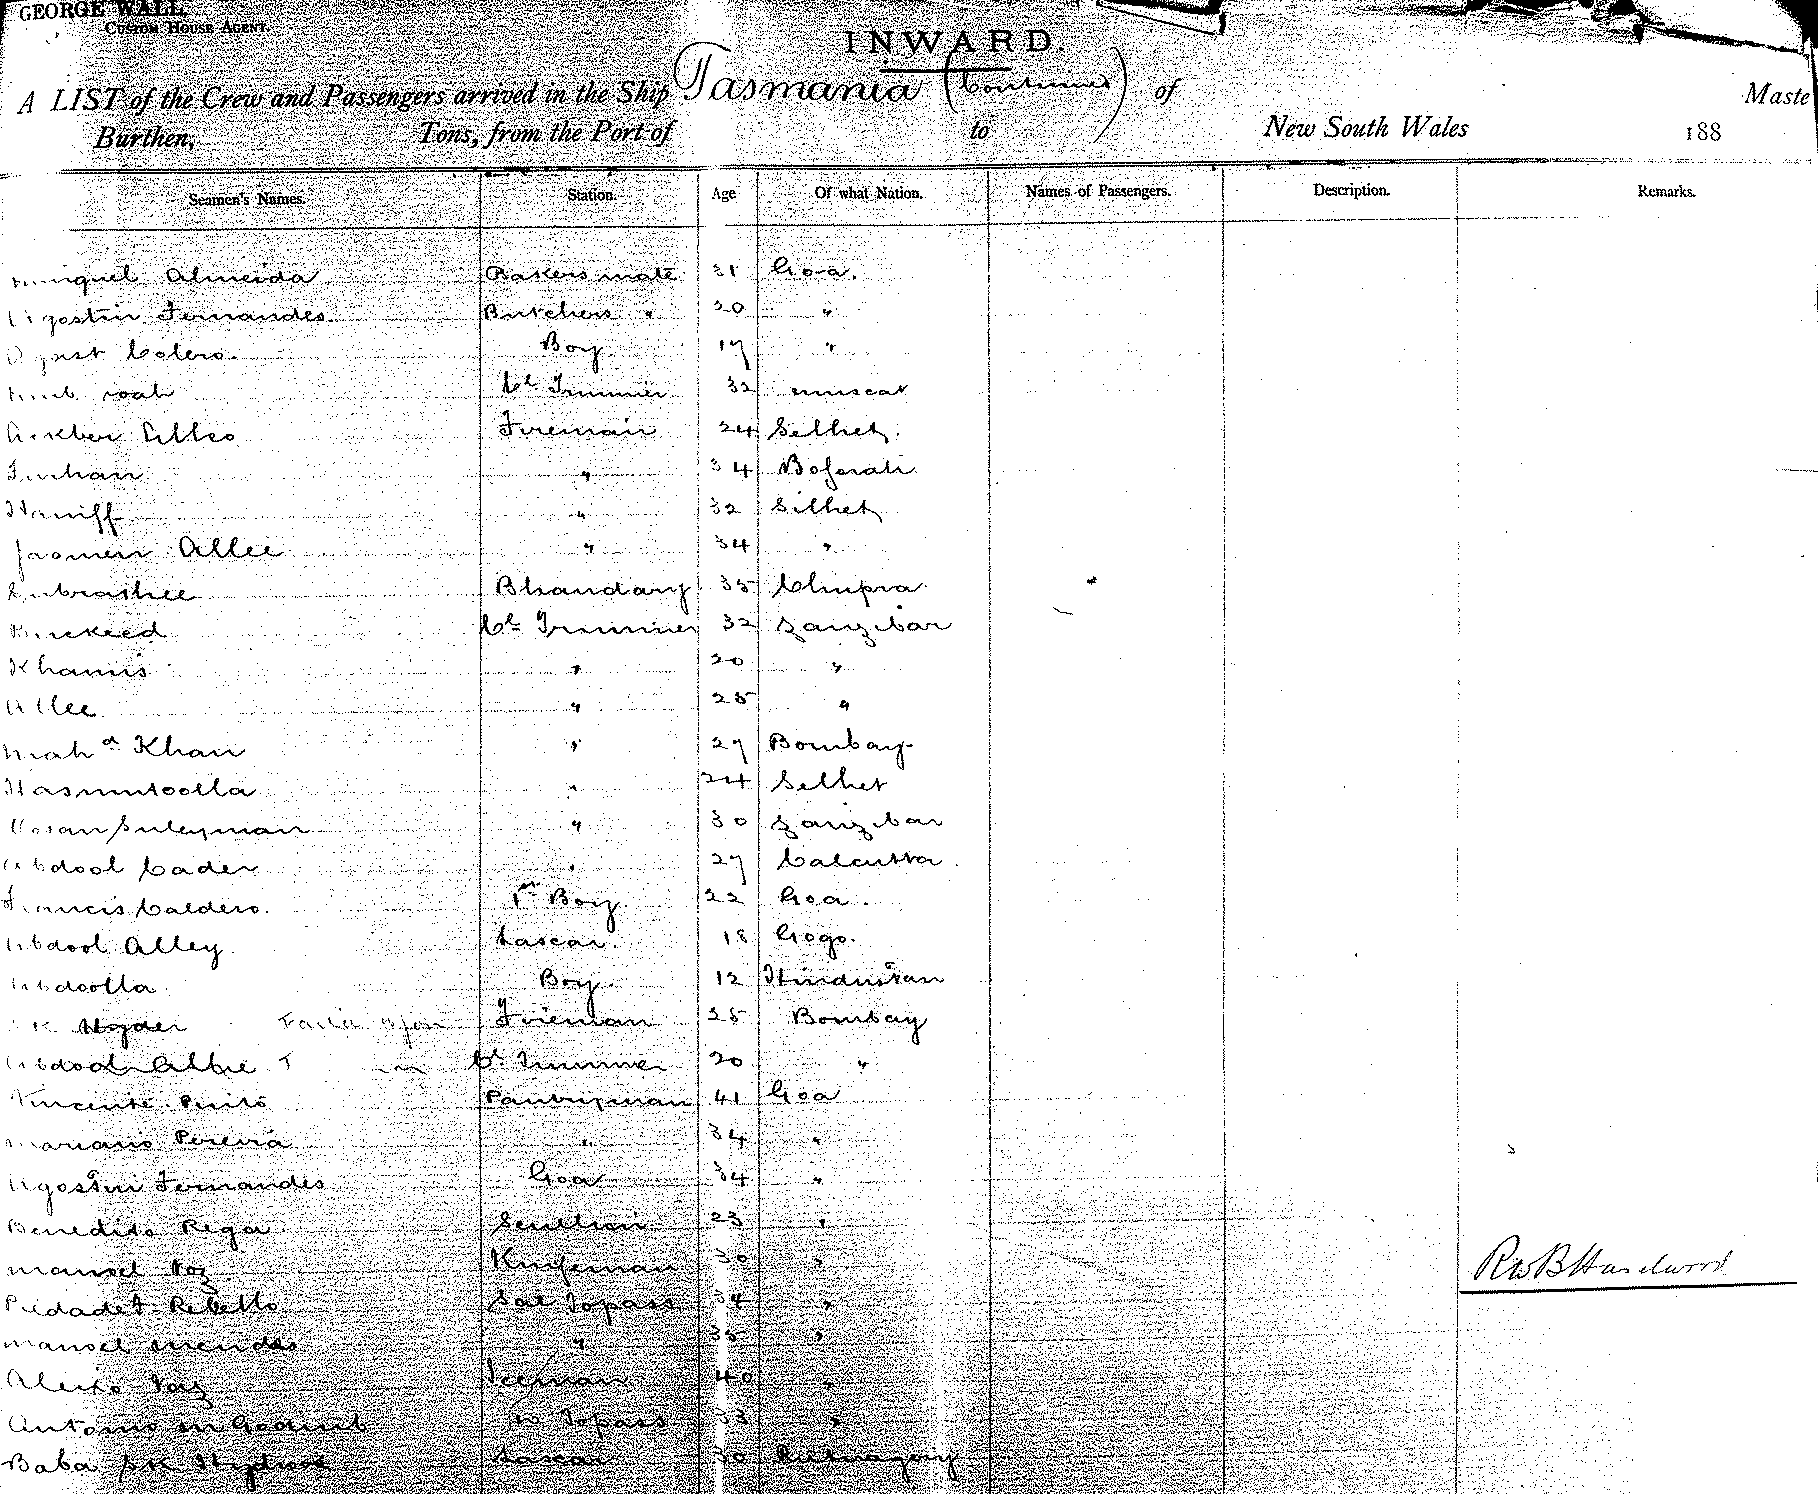 GEORGE WALL
CUSTOM HOUSE AGENT.
INWARD.
A LIST of the Crew and Passengers arrived in the Ship Tasmania (Continued) of Maste
Burthen, Tons, from the Port of to New South Wales 188
Seamen's Names. Station. Age Of what Nation. Names of Passengers. Description. Remarks.
Miguel Almeida Bakers mate 31 Goa.
Agostin Fernandes Butchers " 20 "
Boy 17 "
Cl Trimmer 32 Muscat
Ackber Allee Fireman 24 Selhet
" 34
Haniff " 32 Silhet
Allee " 34 "
Bhandary 35 Chupra
Cl Trimmer 32 Zanzibar
Khamis " 20 "
Allee " 25 "
Mahd Khan " 27 Bombay
Hasmutoolla " 24 Selhet
Hasan Suleyman " 30 Zanzibar
Abdool Cader " 27 Calcutta
Francis Caldero. Pr Boy 22 Goa.
Abdool Alley Lascar 18 Gogo.
Abdoolla Boy 12 Hindustan
Hyder Fireman 25 Bombay
Abdool Cl Trimmer 20 "
Vincente Pinto Pantryman 41 Goa
Mariano Pereira " 34 "
Agostin Fernandes Goa 34 "
Benedito Rega Scullion 23 "
Manoel Vaz Knifeman 30 "
Piedade F. Rebello Topass 34 "
Manoel Mendes " 35 "
Aleixo Vaz Iceman 40 "
Antonio Topass 33 "
Baba Lascar 30 Rutnagary